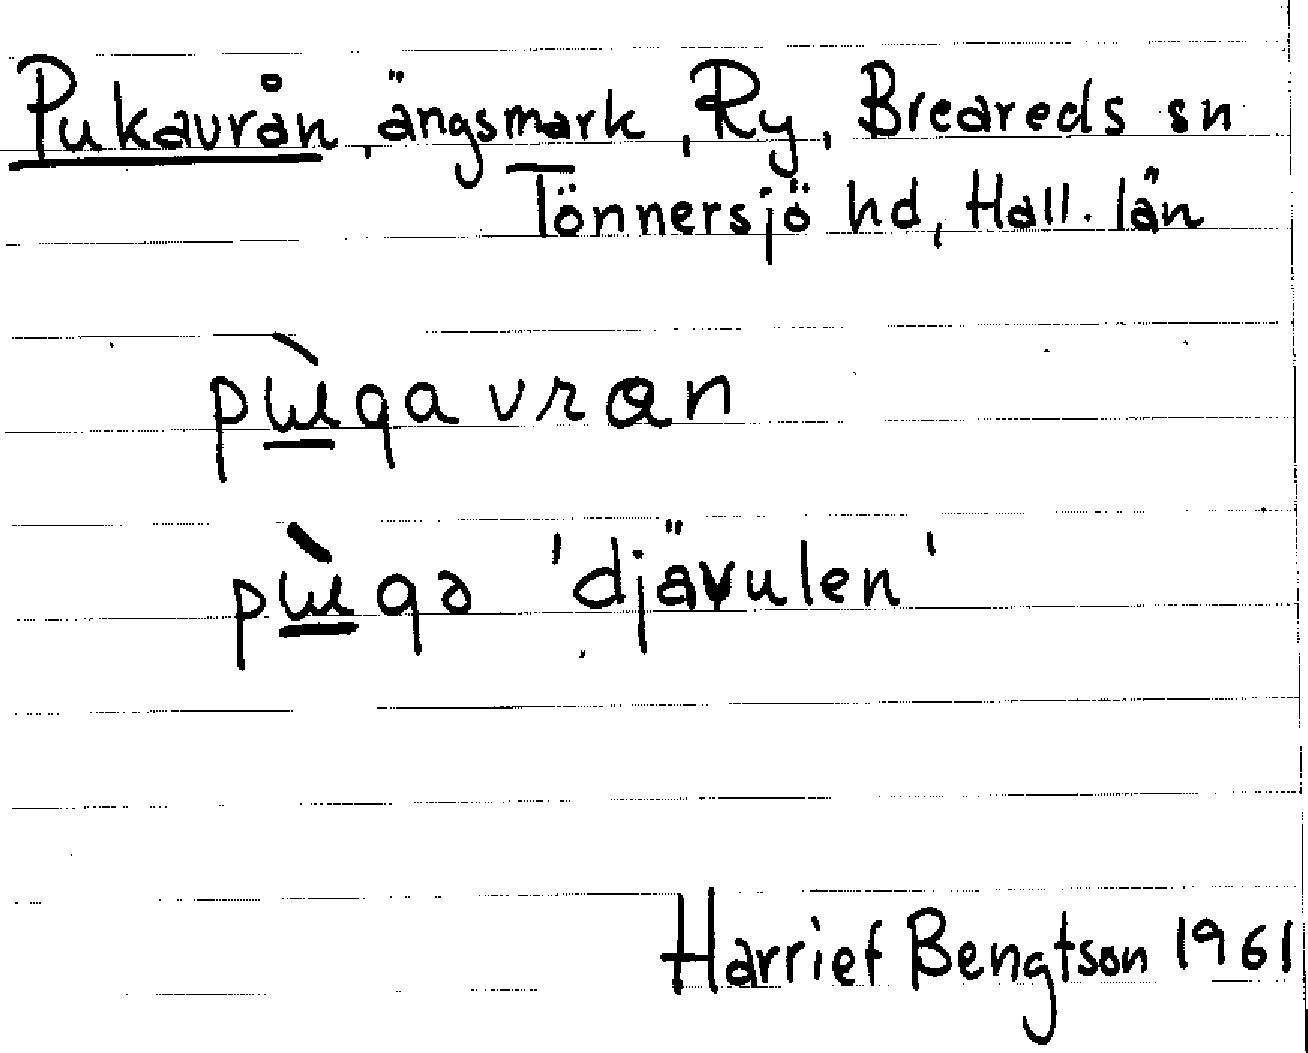 Pukavrån, ängsmark, Ry, Breareds sn
Tönnersjö hd, Hall. län
pɯ̀gavrɑn
pɯ̀gə 'djävulen'
Harrief Bengtson 1961